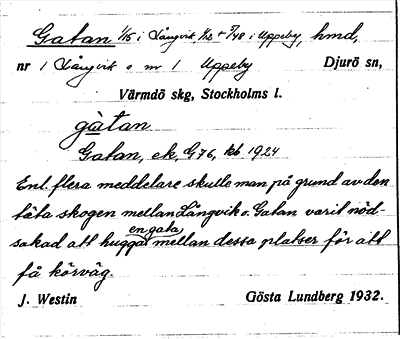 Gatan 1/16 i Långvik, 1/12 + 5/48 i Uppeby, hmd,
nr 1 Långvik o nr 1 Uppeby Djurö sn,
Värmdö skg, Stockholms l.
gàtan
Gatan, ek, G76, kb 1924
Enl. flera meddelare skulle man på grund av den
täta skogen mellan Långvik o. Gatan varit nöd-
sakad att hugga en gata mellan dessa platser för att
få körväg.
J. Westin Gösta Lundberg 1932.